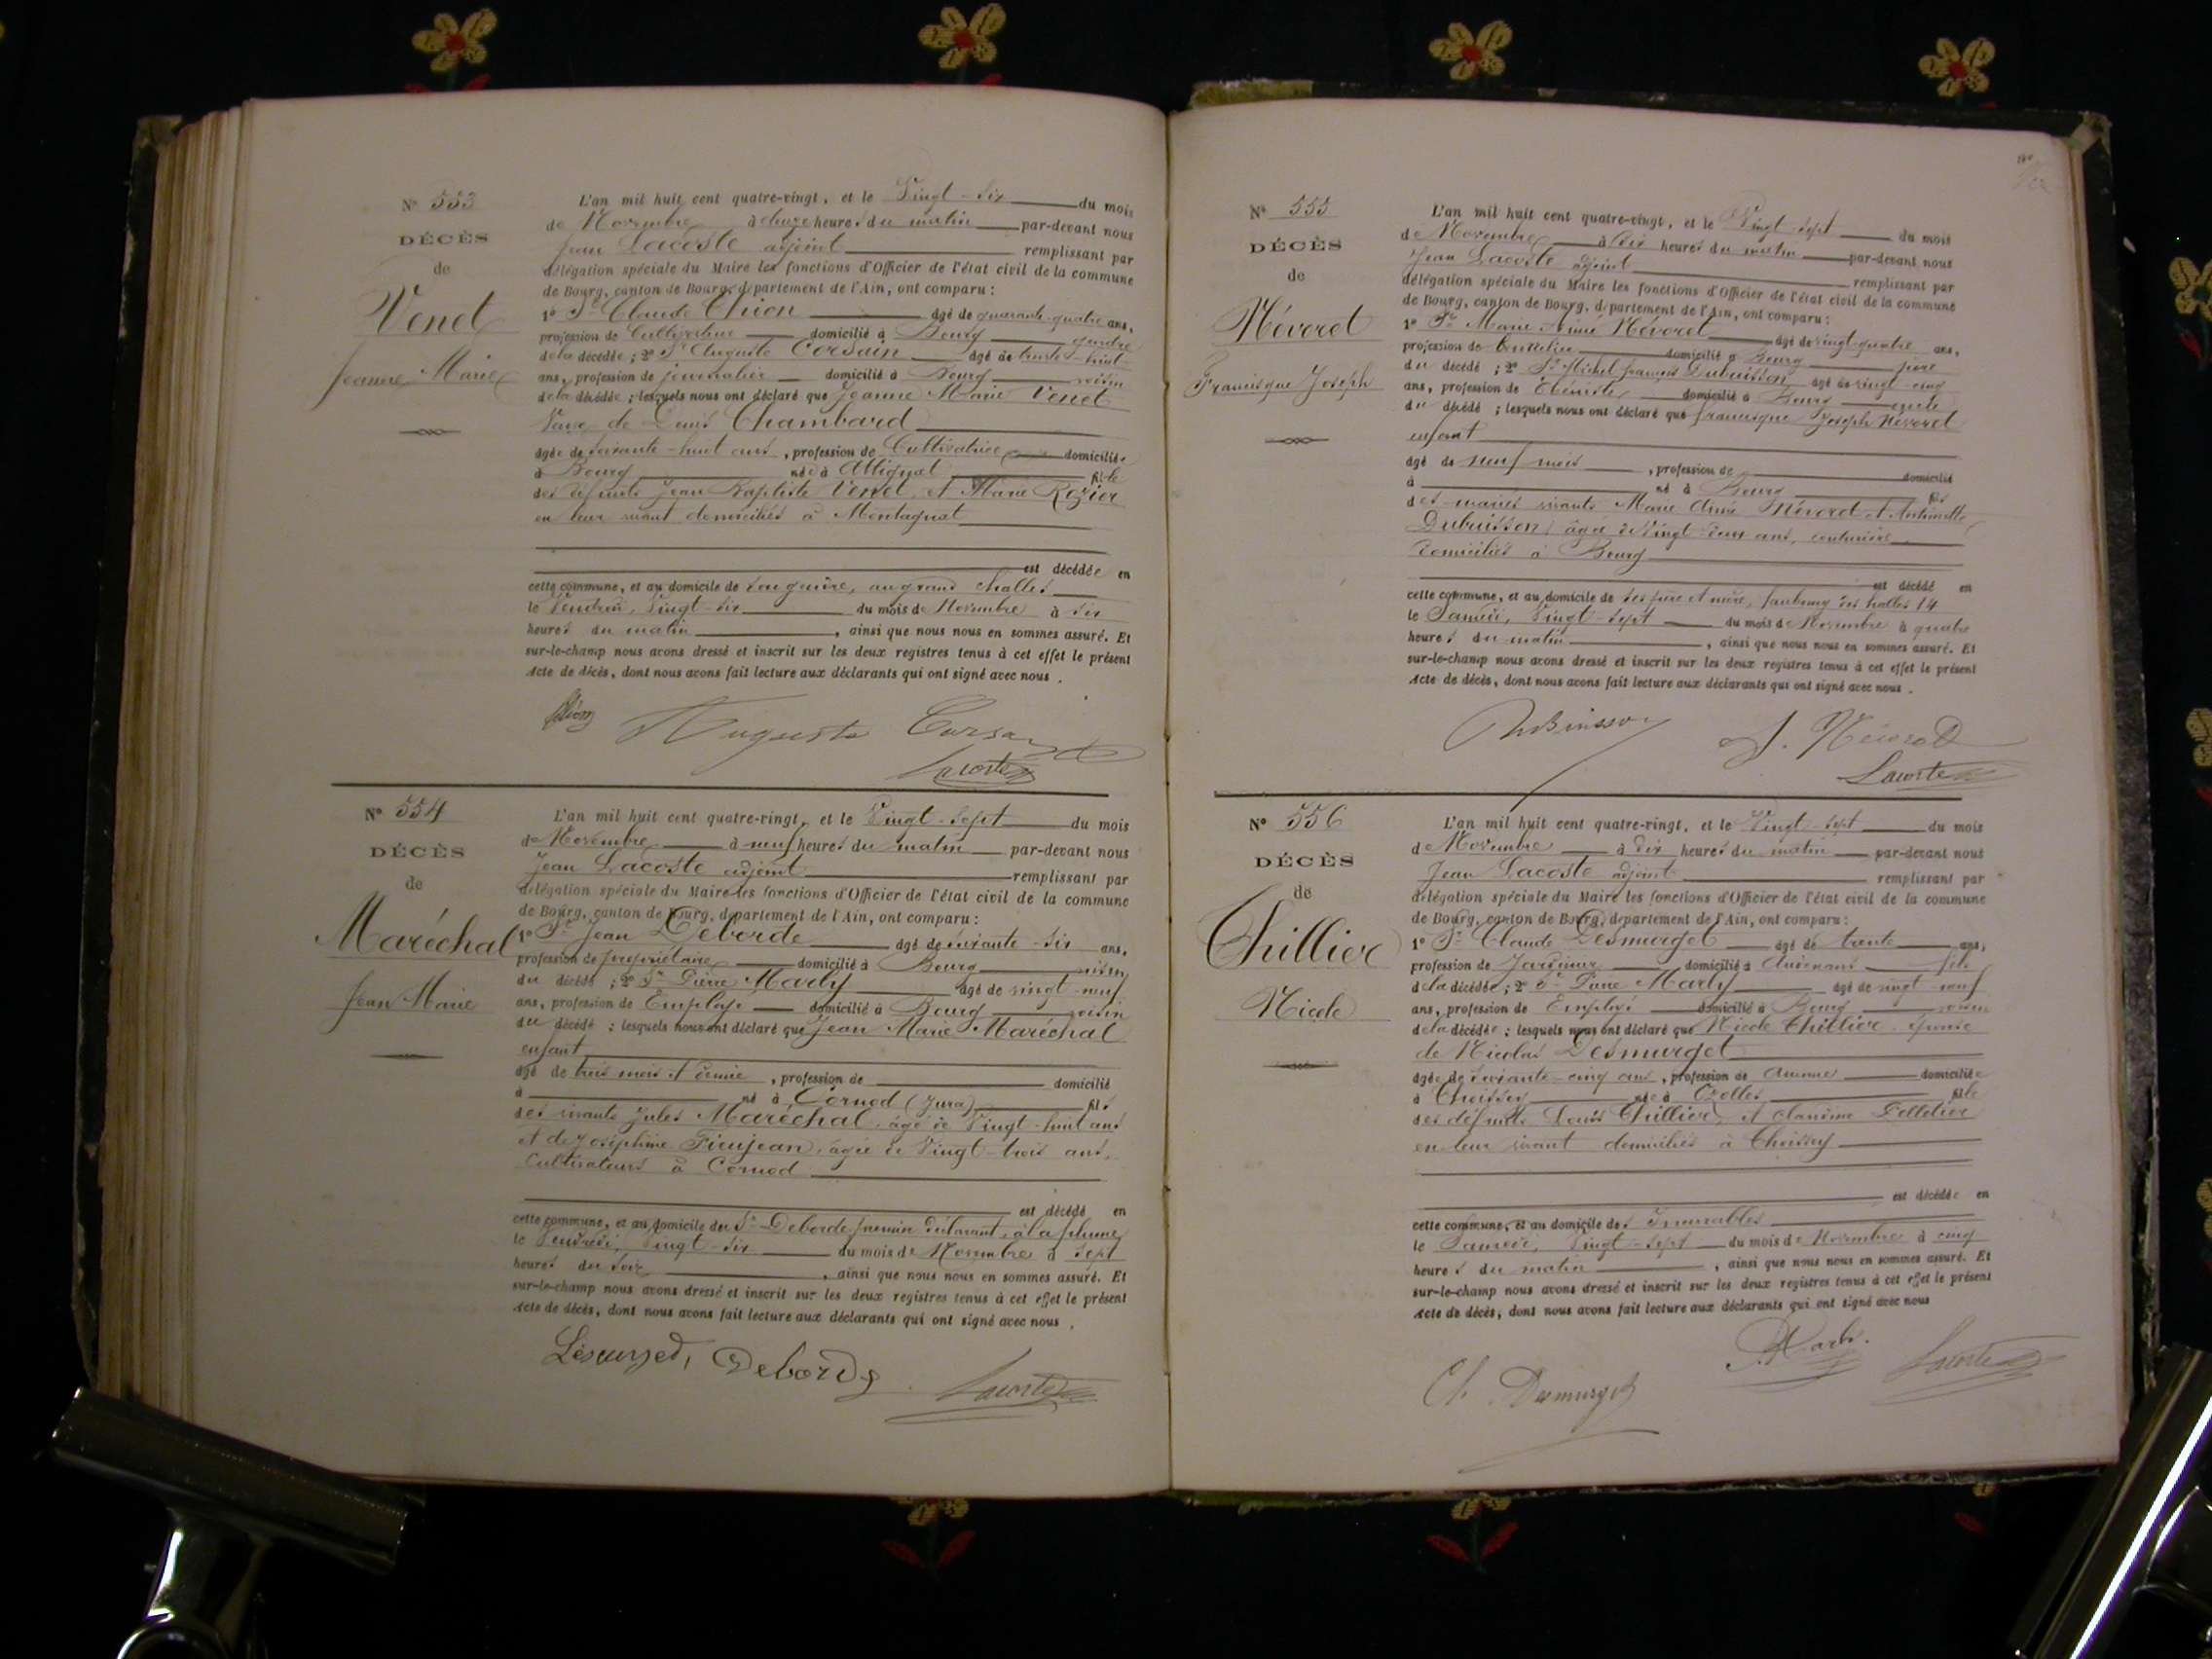 N° 553
DÉCÈS
de
Venet
Jeanne Marie
L'an mil huit cent quatre-vingt, et le Vingt-six du mois
de Novembre à onze heures du matin par-devant nous
Jean Lacoste adjoint remplissant par
délégation spéciale du Maire les fonctions d'Officier de l'état civil de la commune
de Bourg, canton de Bourg, département de l'Ain, ont comparu :
1° Sr Claude Chion âgé de quarante-quatre ans,
profession de Cultivateur domicilié à Bourg gendre
de la décédée ; 2° Sr Auguste Corsain âgé de trente-huit
ans, profession de journalier domicilié à Bourg voisin
de la décédée ; lesquels nous ont déclaré que Jeanne Marie Venet
Veuve de Denis Chambard
âgée de soixante-huit ans, profession de Cultivatrice domiciliée
à Bourg née à Attignat fille
des défunts Jean Baptiste Venet, et Marie Rozier
en leur vivant domiciliés à Montagnat
est décédée en
cette commune, et au domicile de son gendre, au grand challes
le Vendredi, Vingt-six du mois de Novembre à six
heures du matin, ainsi que nous nous en sommes assuré. Et
sur-le-champ nous avons dressé et inscrit sur les deux registres tenus à cet effet le présent
Acte de décès, dont nous avons fait lecture aux déclarants qui ont signé avec nous.
Chion Auguste Corsain
Lacoste
N° 554
DÉCÈS
de
Maréchal
Jean Marie
L'an mil huit cent quatre-vingt, et le Vingt-sept du mois
de Novembre à neuf heures du matin par-devant nous
Jean Lacoste adjoint remplissant par
délégation spéciale du Maire les fonctions d'Officier de l'état civil de la commune
de Bourg, canton de Bourg, département de l'Ain, ont comparu :
1° Sr Jean Deborde âgé de soixante-six ans,
profession de propriétaire domicilié à Bourg voisin
du décédé ; 2° Sr Pierre Marly âgé de vingt-neuf
ans, profession de Employé domicilié à Bourg voisin
du décédé ; lesquels nous ont déclaré que Jean Marie Maréchal
enfant
âgé de trois mois et demie, profession de domicilié
à né à Cornod (Jura) fils
des vivants Jules Maréchal, âgé de Vingt-huit ans
et de Joséphine Fieujean, âgée de Vingt-trois ans,
Cultivateurs à Cornod
est décédé en
cette commune, et au domicile du Sr Deborde premier déclarant, à la plume
le Vendredi, Vingt-six du mois de Novembre à sept
heures du soir, ainsi que nous nous en sommes assuré. Et
sur-le-champ nous avons dressé et inscrit sur les deux registres tenus à cet effet le présent
Acte de décès, dont nous avons fait lecture aux déclarants qui ont signé avec nous.
Deborde Lacoste
N° 555
DÉCÈS
de
Néveret
Francisque Joseph
L'an mil huit cent quatre-vingt, et le Vingt-sept du mois
de Novembre à dix heures du matin par-devant nous
Jean Lacoste adjoint remplissant par
délégation spéciale du Maire les fonctions d'Officier de l'état civil de la commune
de Bourg, canton de Bourg, département de l'Ain, ont comparu :
1° Sr Marie Aimé Néveret âgé de vingt-quatre ans,
profession de domicilié à Bourg père
du décédé ; 2° Sr Michel François Dubuisson âgé de vingt-cinq
ans, profession de Ebéniste domicilié à Bourg oncle
du décédé ; lesquels nous ont déclaré que Francisque Joseph Néveret
enfant
âgé de neuf mois, profession de domicilié
à né à Bourg fils
des mariés vivants Marie Aimé Néveret et Antoinette
Dubuisson, âgée de Vingt-deux ans, couturière
domiciliés à Bourg
est décédé en
cette commune, et au domicile de ses père et mère, faubourg des halles 14
le Samedi, Vingt-sept du mois de Novembre à quatre
heures du matin, ainsi que nous nous en sommes assuré. Et
sur-le-champ nous avons dressé et inscrit sur les deux registres tenus à cet effet le présent
Acte de décès, dont nous avons fait lecture aux déclarants qui ont signé avec nous.
Dubuisson Néveret
Lacoste
N° 556
DÉCÈS
de
Thillier
Nicole
L'an mil huit cent quatre-vingt, et le Vingt-sept du mois
de Novembre à dix heures du matin par-devant nous
Jean Lacoste adjoint remplissant par
délégation spéciale du Maire les fonctions d'Officier de l'état civil de la commune
de Bourg, canton de Bourg, département de l'Ain, ont comparu :
1° Sr Claude Desmurget âgé de trente ans,
profession de Jardinier domicilié à fils
de la décédée ; 2° Sr Pierre Marly âgé de vingt-neuf
ans, profession de Employé domicilié à Bourg voisin
de la décédée ; lesquels nous ont déclaré que Nicole Thillier épouse
de Nicolas Desmurget
âgée de soixante-cinq ans, profession de Aucune domiciliée
à Thoissey née à fille
des défunts Louis Thillier, et Claudine Pelletier
en leur vivant domiciliés à Thoissey
est décédée en
cette commune, et au domicile des Incurables
le Samedi, Vingt-sept du mois de Novembre à cinq
heures du matin, ainsi que nous nous en sommes assuré. Et
sur-le-champ nous avons dressé et inscrit sur les deux registres tenus à cet effet le présent
Acte de décès, dont nous avons fait lecture aux déclarants qui ont signé avec nous
Lacoste
Cl. Desmurget